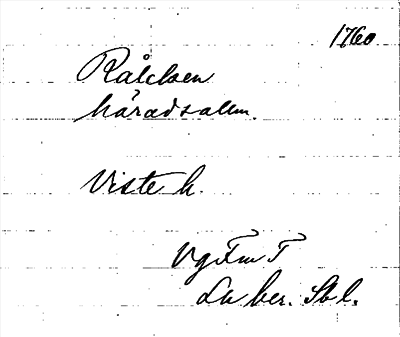 1760
Råclsen
häradsallm.
Viste h.
Vg Fm T
La ber. Sbl.